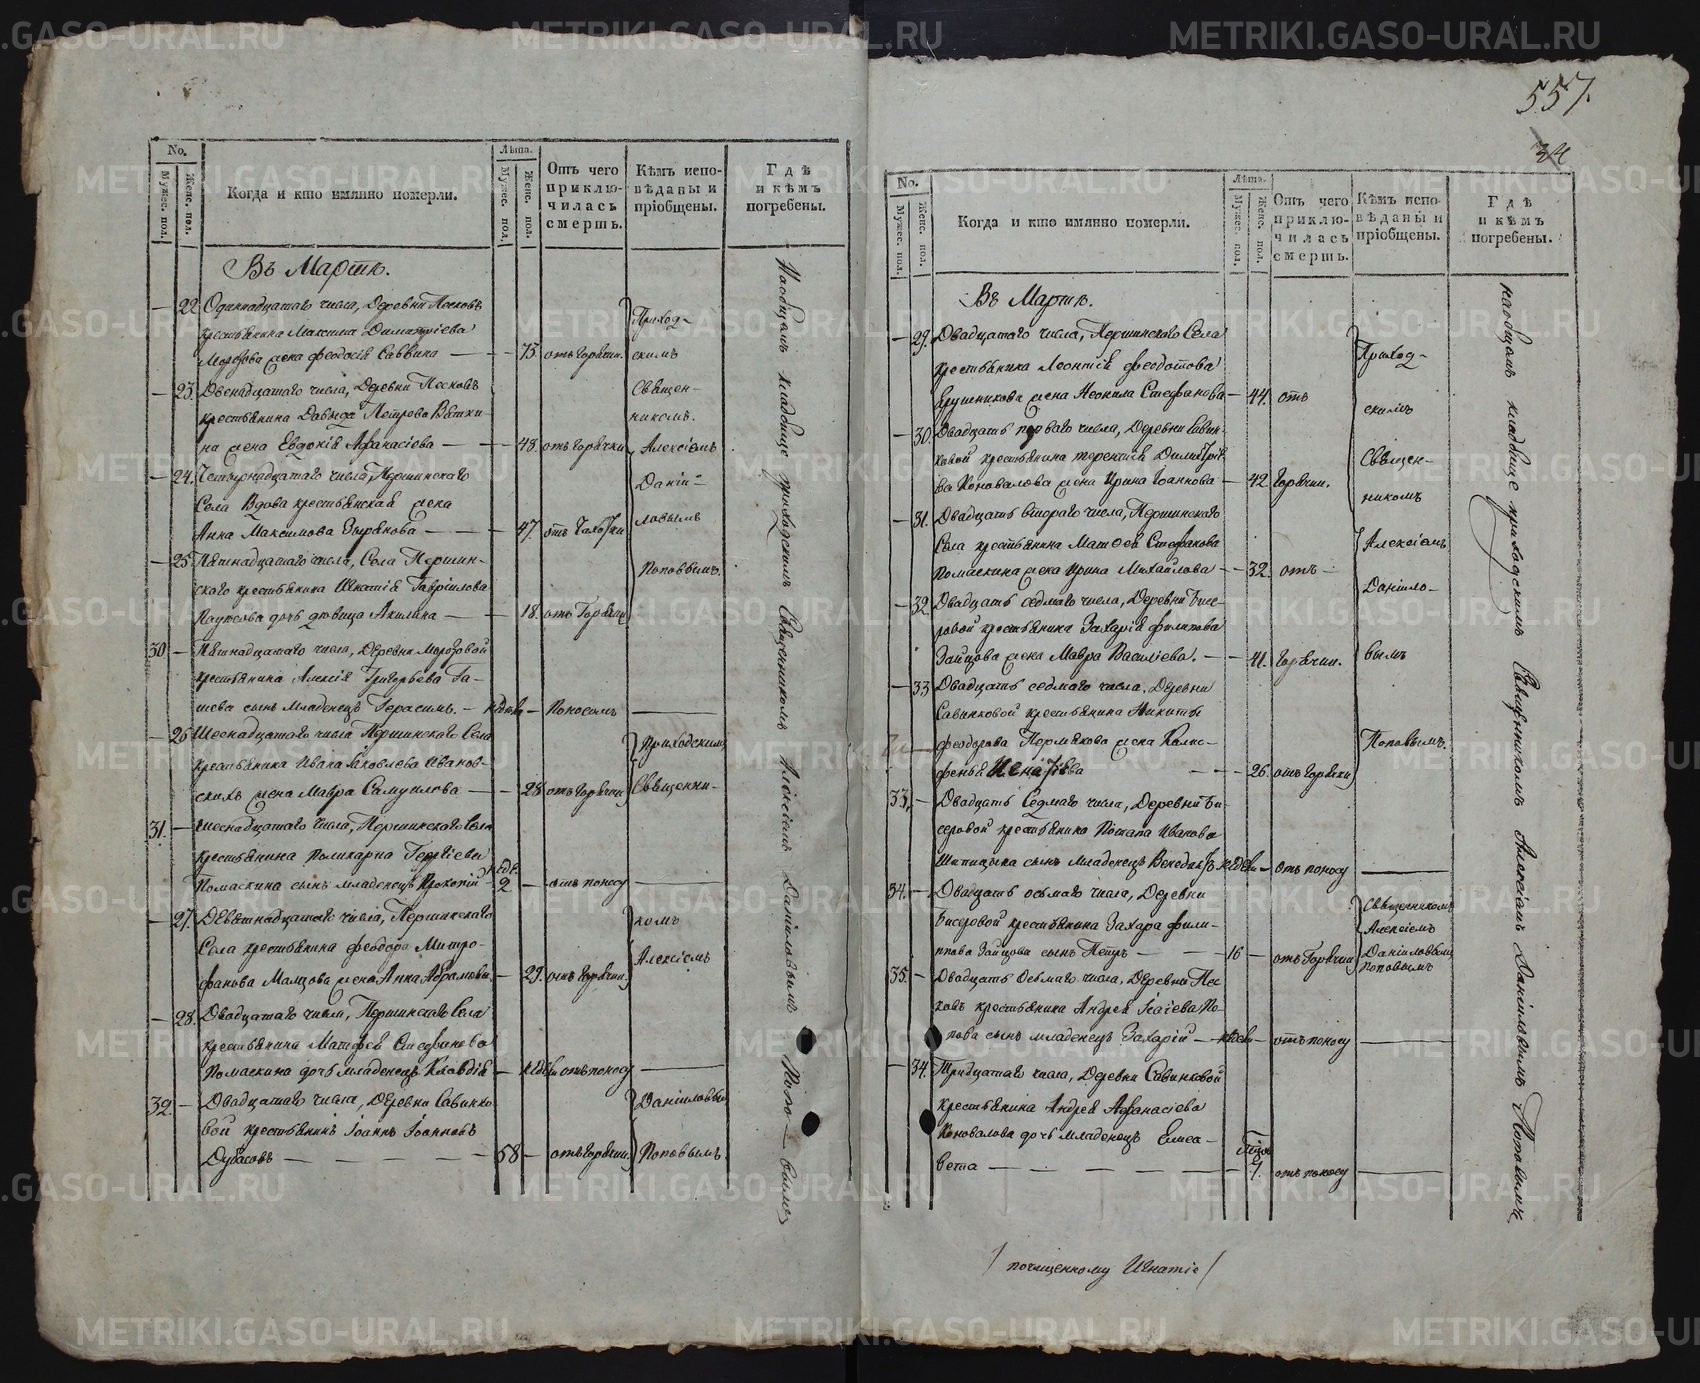 557.
34
No.
Мужес. пол.
Женс. пол.
Когда и кто имянно померли.
Лѣта.
Мужес. пол.
Женс. пол.
Отъ чего приклю-чилась смерть.
Кѣмъ испо-вѣданы и пріобщены.
Гдѣ и кѣмъ погребены.
Въ Мартѣ.
— 22. Одиннадцатаго числа, Деревни Песковъ
крестьянина Максима Димитріева
Морозова жена Феодосія Саввина — — 75. отъ горячки. Приход-скимъ
— 23. Двенадцатаго числа, Деревни Песковъ Священ-
крестьянина Давыда Петрова Вятки- никомъ.
на жена Евдокія Афанасіева — — 48. отъ горячки Алексіемъ
— 24. Четырнадцатаго числа, Першинскаго Даніи-
Села Вдова крестьянская жена ловымъ
Анна Максимова Зырянова — — 47. отъ чахотки
— 25. Пятнадцатаго числа, Села Першин- Поповымъ.
скаго крестьянина Игнатія Гавріилова
дочь девица Акилина — — 18. отъ горячки
30 — Пятнадцатаго числа, Деревни Морозовой
крестьянина Алексія Григорьева Га-
шева сынъ младенецъ Герасимъ. — — Поносомъ —
— 26 Шеснадцатаго числа Першинскаго Села Приходскимъ
крестьянина Ивана Іаковлева Иванов-
скихъ жена Мавра Самуилова — — 28 отъ горячки Священни-
31. — Шеснадцатаго числа, Першинскаго Села
крестьянина Поликарпа Георгіева
Помаскина сынъ младенецъ Прокопій 2 — отъ поносу —
— 27. Девятнадцатаго числа, Першинскаго комъ
Села крестьянина Феодора Митро- Алексіемъ
фанова Малцова жена Анна Абрамова — 29. отъ горячки
— 28. Двадцатаго числа, Першинскаго Села
крестьянина Матфея Стефанова
Помаскина дочь младенецъ Клавдія — отъ поносу —
32. — Двадцатаго числа, Деревни Савинко- Даніиловымъ
вой крестьянинъ Іоаннъ Іоанновъ
Дубасовъ — — 58 — отъ горячки. Поповымъ.
На общемъ кладбище приходскимъ Священникомъ Алексіемъ Даніиловымъ Попо — вымъ
No.
Мужес. пол.
Женс. пол.
Когда и кто имянно померли.
Лѣта.
Мужес. пол.
Женс. пол.
Отъ чего приклю-чилась смерть.
Кѣмъ испо-вѣданы и пріобщены.
Гдѣ и кѣмъ погребены.
Въ Мартѣ.
— 29. Двадцатаго числа, Першинскаго Села
крестьянина Леонтія Феодотова Приход-
жена Неонила Стефанова — 44. отъ скимъ
— 30. Двадцать перваго числа, Деревни Савин-
ковой крестьянина Терентія Димитріе- Священ-
ва Коновалова жена Ирина Іоаннова — 42 горячки. никомъ
— 31. Двадцать втораго числа, Першинскаго
Села крестьянина Матфея Стефанова Алексіемъ
Помаскина жена Ирина Михайлова — — 32. отъ —
— 32. Двадцать седмаго числа, Деревни Бисе- Даніило-
ровой крестьянина Захарія Филипова
Зайцова жена Мавра Василіева. — — 41. горячки. вымъ
— 33 Двадцать седмаго числа, Деревни
Савинковой крестьянина Никиты
Феодорова Пермякова жена Поповымъ.
Игнатіева — — 26. отъ горячки
33. — Двадцать Седмаго числа, Деревни Би-
серовой крестьянина Потапа Иванова
Шипицына сынъ младенецъ — отъ поносу —
34. — Двадцать осьмаго числа, Деревни Священникомъ
Бисеровой крестьянина Захара Фили- Алексіемъ
ппова Зайцова сынъ Петръ — — 16 — отъ горячки Даніиловымъ Поповымъ
35. — Двадцать осьмаго числа, Деревни Пес-
ковъ крестьянина Андрея Исаіева По-
пова сынъ младенецъ Захарій — — отъ поносу —
— 34. Тридцатаго числа, Деревни Савинковой
крестьянина Андрея Афанасіева
Коновалова дочь младенецъ Елиса-
вета — — — отъ поносу —
на общемъ кладбище приходскимъ Священникомъ Алексіемъ Даніиловымъ Поповымъ
/ почищенному Игнатіе /
METRIKI.GASO-URAL.RU